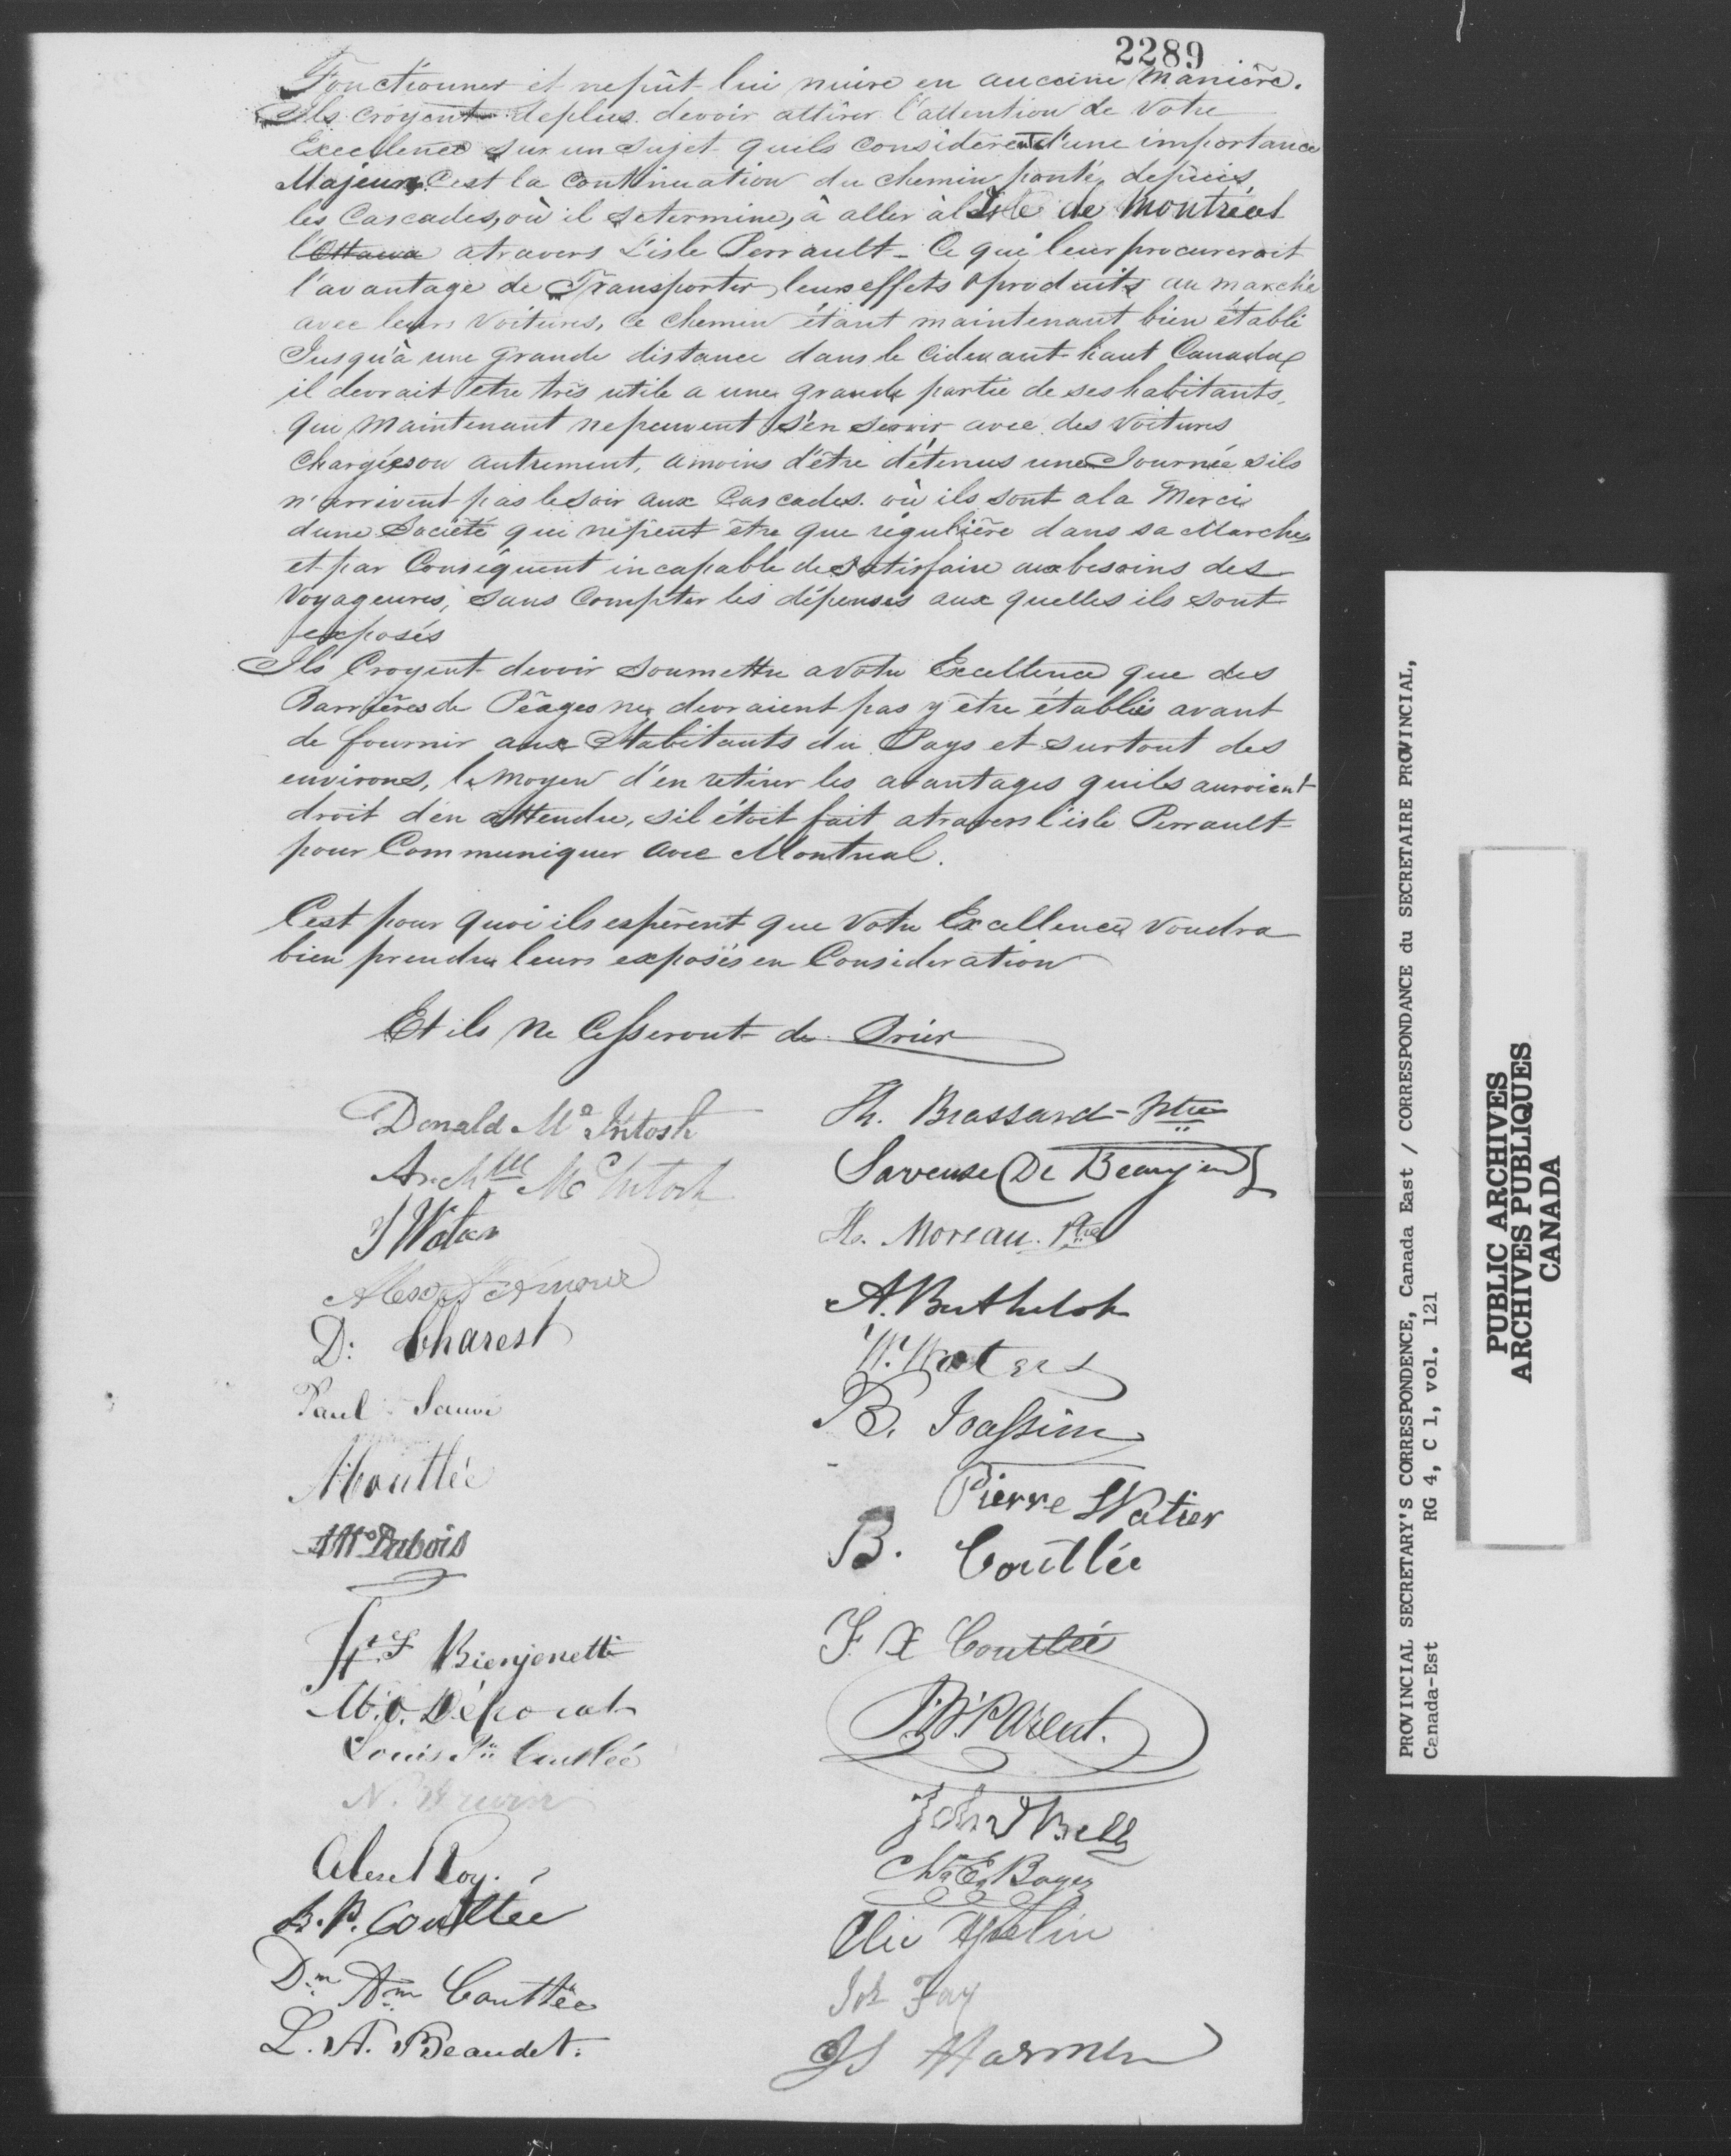 2289
Fonctionner et nepût lui nuire en aucune Manière.
Ils croyent deplus devoir attirer l'attention de Votre
Excellence sur un Sujet quils considèrent d'une importance
Majeure C'est la Continuation du chemin ponté, depuis
les Cascades, où il se termine, à aller à l'Isle de Montréal
l'Ottawa atravers L'isle Perrault - Ce qui leur procurerait
l'avantage de Transporter leurs effets & produits au marché
avec leurs Voitures, ce chemin étant maintenant bien établi
Jusqu'à une grande distance dans le cidevant haut Canada
il devrait etre très utile a une grande partie de ses habitants,
qui maintenant nepeuvent s'en servir avec des voitures
chargées ou autrement, amoins d'être détenus une Journée sils
n'arrivent pas le soir aux Cascades. où ils sont ala Merci
dune Société qui nepeut être que régulière dans sa Marche
et par Conséquent incapable de satisfaire aux besoins des
Voyageures, sans Compter les dépenses aux quelles ils sont
exposés
Ils Croyent devoir soumettre a Votre Excellence que des
Barrières de Péages ne devraient pas y être établies avant
de fournir aux Habitants du Pays et surtout des
environs, le moyen d'en retirer les avantages quils auroient
droit d'en attendre, sil étoit fait atravers l'isle Perrault
pour Communiquer avec Montreal.
C'est pour quoi ils espèrent que Votre Excellence voudra
bien prendre leurs exposés en Consideration
Et ils ne Cesseront de Prier
Donald Mc Intosh
Th. Brassard - Ptre
Archd McIntosh
Saveuse De Beaujeu
J Water
H. Moreau. Ptre
Alex
A. Berthelot
D: Charest
W. Waters
Paul Sauvé
B. Joassim
Pierre Watier
Dubois
B. Coutlée
F X Coutlée
Bienjonetti
Parent.
Louis Coutlée
N.
John Bell
Alex Roy.
Chs E. Boyer
B. P. Coutlée
Elie
Dm Am Coutlée
Jos Fay
L. A. Beaudet.
Js Harmen
PROVINCIAL SECRETARY'S CORRESPONDENCE, Canada East / CORRESPONDANCE du SECRETAIRE PROVINCIAL,
Canada-Est RG 4, C 1, vol. 121
PUBLIC ARCHIVES
ARCHIVES PUBLIQUES
CANADA